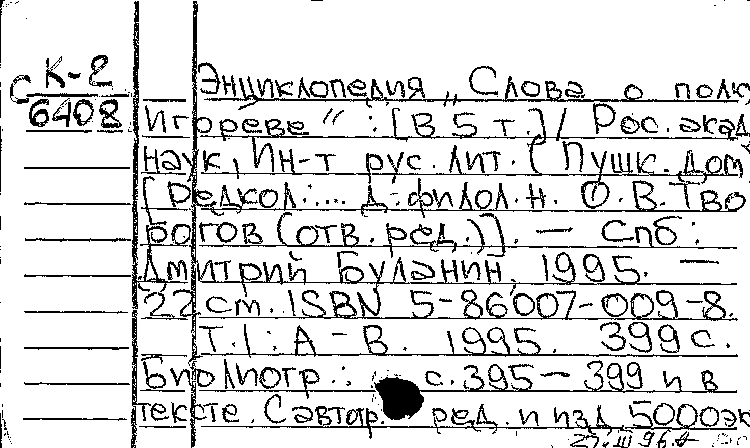 С К-2
6408
Энциклопедия „Слова о полку
Игореве“ : [В 5 т.] / Рос. акад.
наук, Ин-т рус. лит. (Пушк. Дом)
[Редкол.:... д. филол. н. О.В. Тво
богов (отв. ред.)]. — Спб :
Дмитрий Буланин, 1995. —
22 см. ISBN 5-86007-009-8.
Т. 1 : А - В. 1995. 399 с.
Библиогр.: с. 395 — 399 и в
тексте. С автор. ред. и изд. 5000 эк
27. III 96.